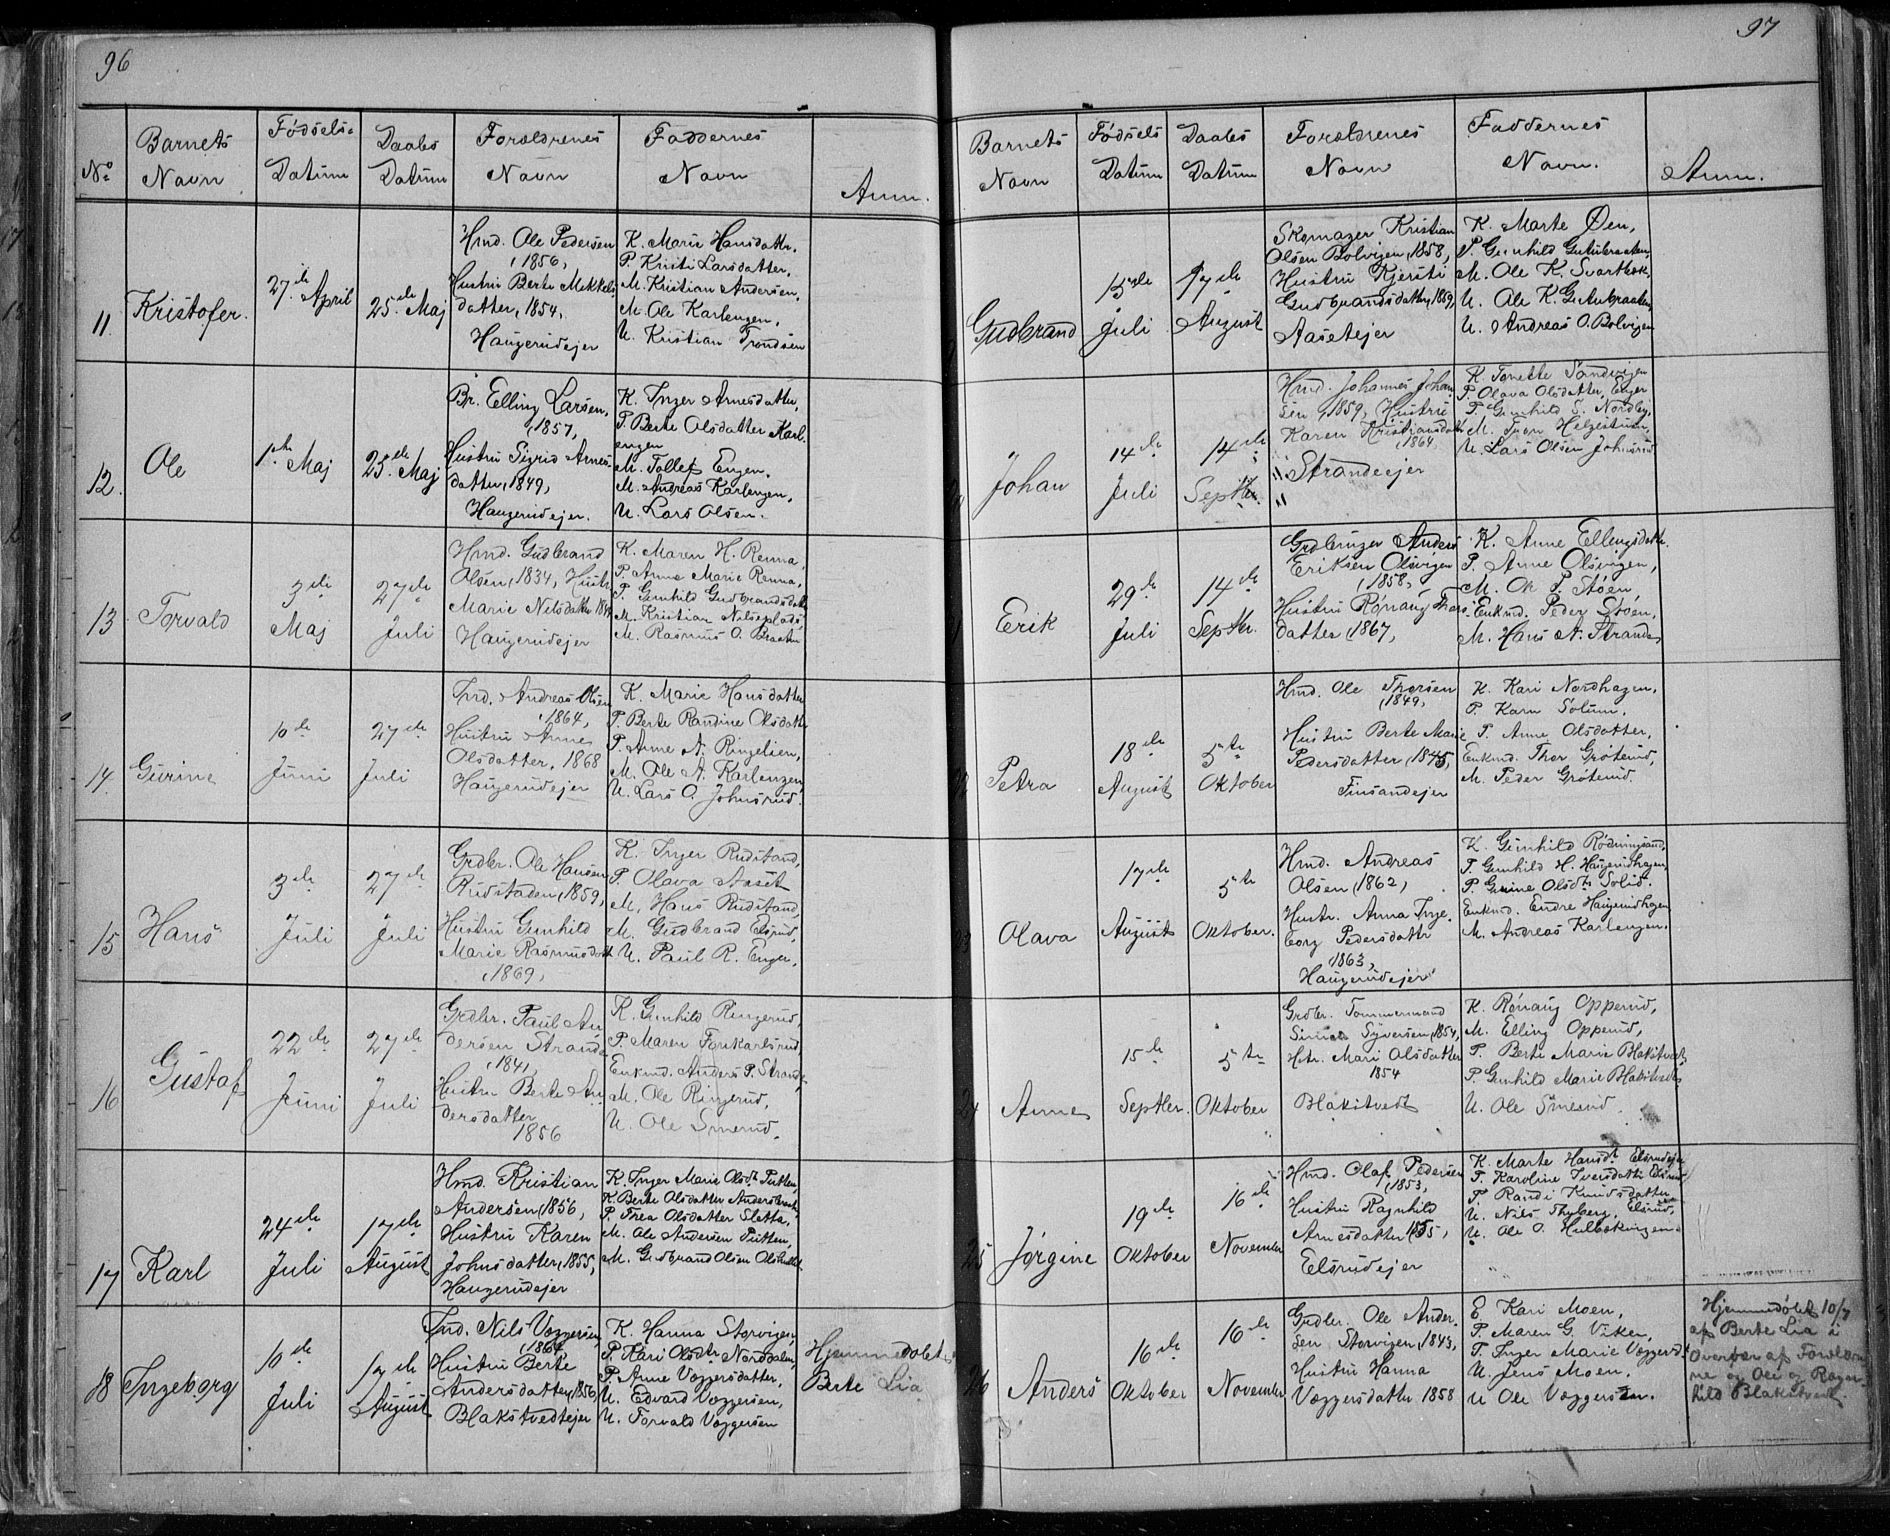 96
No
Barnets
Navn
Fødsels-
Datum
Daabs
Datum
Forældrenes
Navn
Faddernes
Navn
Anm.
11.
Kristofer.
27de April
25de Maj
Hmd. Ole Pedersen
1856,
Hustru Berte Mekkels-
datter, 1854,
Haugerudejer
K. Marie Hansdatter.
P. Kristi Larsdatter,
M. Kristian Andersen,
M. Ole Karlengen,
U. Kristian Trondsen
12.
Ole
1ste Maj
25de Maj
Br. Elling Larsen,
1857,
Hustru Sigrid Arnes-
datter, 1849,
Haugerudejer.
K. Inger Arnesdatter,
P. Berte Olsdatter Karl-
engen
M. Tollef Engen.
M. Andreas Karlengen,
U. Lars Olsen.
13
Torvald
3die
Maj
27de
Juli
Hmd. Gudbrand
Olsen, 1834, Hustr.
Marie Nilsdatter
Haugerudejer
K. Maren H. Renna,
P. Anne Marie Renna,
P. Gunhild Gudbrandsdatter
M. Kristian Nilseplads
M. Rasmus O. Braaten
14.
Gurine
10de
Juni
27de
Juli
Ind. Andreas Olsen
1864,
Hustru Anne
Olsdatter, 1868
Haugerudejer
K. Marie Hansdatter
P. Berte Randine Olsdatter
P. Anne N. Ringelien,
M. Ole A. Karlengen,
U. Lars O. Johnsrud.
15
Hans
3die
Juli
27de
Juli
Grdbr. Ole Hansen
Rudstaden, 1859,
Hustru Gunhild
Marie Rasmusdatt
1869,
K. Inger Rudstand,
P. Olava Aaset
M. Hans Rudstand,
M. Gudbrand Elsrud,
U. Paul R. Enger.
16
Gustaf
22de
Juni
27de
Juli
Grdbr. Paul An-
dersen Strande
1841,
Hustru Berte An-
dersdatter
1856
K. Gunhild Ringerud,
P. Maren Fonkarlsrud,
Enkmd. Anders P. Strande,
M. Ole Ringerud,
U. Ole Smerud.
17
Karl
24de
Juli
17de
August
Hmd. Kristian
Andersen, 1856,
Hustru Karen
Johnsdatter, 1855,
Haugerudejer
K. Inger Marie Olsdt. Putten
K. Berte Olsdatter Andersbraaten
P. Thea Olsdatter Sletta,
M. Ole Andersen Putten,
M. Gudbrand Olsen
18
Ingeborg
10de
Juli
17de
August
Ind. Nils Væggersen,
1864
Hustru Berte
Andersdatter, 1856,
Blakstvedtejer
K. Hanna Storvigen,
P. Kari Olsdtr Norddalen,
P. Anne Væggersdatter,
U. Edvard Væggersen,
U. Torvald Væggersen
Hjemmedøbt
Berte Lia
97
Barnets
Navn
Fødsels
Datum
Daabs
Datum
Forældrenes
Navn
Faddernes
Navn.
Anm.
Gudbrand
15de
Juli
17de
August
Skomager Kristian
Olsen Bolvigen, 1858,
Hustru Kjersti
Gudbrandsdatter, 1859,
Aasetejer
K. Marte Øen,
P. Gunhild Gutubraaten,
M. Ole K. Svartbæk,
U. Ole K. Gutubraaten,
U. Andreas O. Bolvigen
Johan
14de
Juli
14de
Septbr.
Hmd. Johannes Johan-
sen, 1859, Hustru
Karen Kristiansdatter
1864
Strandeejer
K. Tonette Sandvigen
P. Olava Olsdatter, Enger
P. Gunhild S. Nordby,
M. Helgestuen,
U. Lars Olsen Johnsrud
Erik
29de
Juli
14de
Septbr.
Grdbruger Anders
Eriksen Olsvigen
1858,
Hustru Rønaug Thors-
datter, 1867,
K. Anne Ellingsdatter
P. Anne Olsvigen,
M. Ole P. Støen,
Enkmd. Peder Støen,
M. Hans A. Strande
Petra
18de
August
5te
Oktober
Hmd. Ole Thorsen
1849,
Hustru Berte Marie
Pedersdatter, 1845,
Finsandejer
K. Kari Nordhagen,
P. Karn Solum,
P. Anne Olsdatter,
Enkmd. Thor Grøterud,
M. Peder Grøterud.
Olava
17de
August
5te
Oktober.
Hmd. Andreas
Olsen, 1862,
Hustr. Anna Inge-
borg Pedersdattr
1863,
Haugerudejer
K. Gunhild Rødningsand,
P. Gunhild H. Haugerudhagen,
P. Gurine Olsdt. Solid.
Enkmd. Endre Haugerudhagen
M. Andreas Karlengen.
24
Anne
15de
Septbr.
5te
Oktober
Grdbr. Tommermand
Simen Syversen, 1854,
Hstr. Mari Olsdatter
1854
Blakstvedt
K. Rønaug Opperud,
M. Elling Opperud,
P. Berte Marie Blakstvedt
P. Gunhild Marie Blakstvedt
U. Ole Smerud.
25
Jørgine
19de
Oktober
16de
November
Hmd. Olaf Pedersen
1853,
Hustru Ragnhild
Arnesdatter, 1855,
Elsrudejer
K. Marte Hansdt. Elsrudejer
P. Karoline Iversdatter Elsrud
P. Randi Knudsdatter
U. Nils Thyberg, Elsrud,
U. Ole O. Hulbækingen
26
Anders
16de
Oktober
16de
November
Grdbr. Ole Ander-
sen Storvigen, 1843,
Hustru Hanna
Væggersdatter 1858
E. Kari Moen,
P. Maren G. Viken,
P. Inger Marie Væggersdt.
U. Jens Moen.
U Ole Væggersen.
Hjemmedøbt 10/7
af Berte Lia i
Overvær af Forældre-
ne og Ole og Ragn-
hild Blakstvedt.